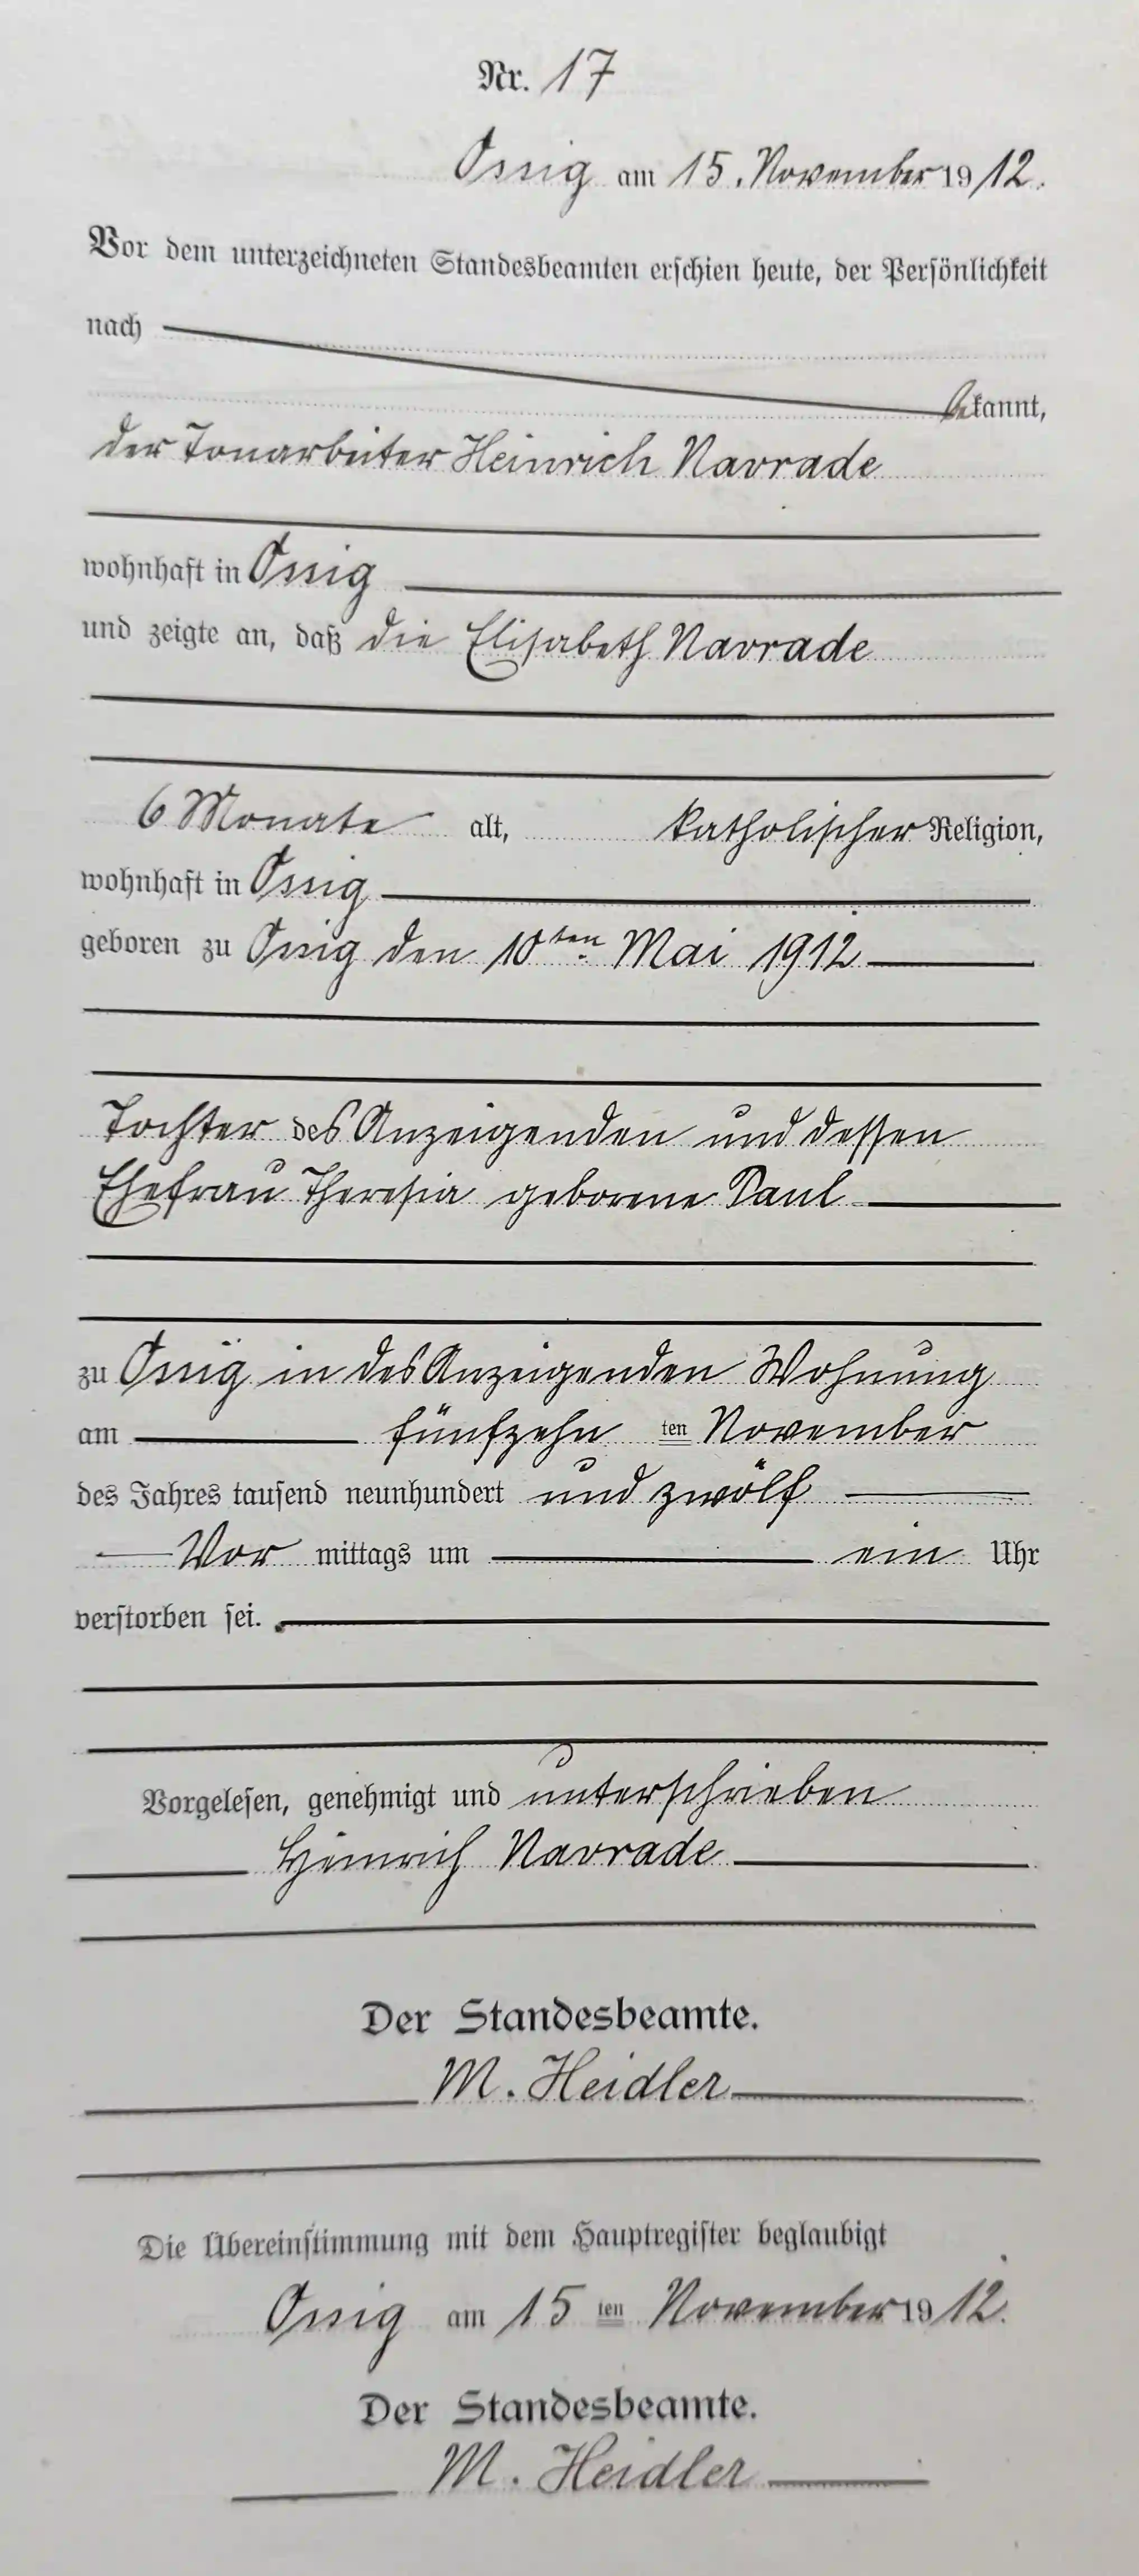 Nr. 17
Ossig am 15. November 1912.
Vor dem unterzeichneten Standesbeamten erschien heute, der Persönlichkeit
nach
bekannt,
der Tonarbeiter Heinrich Navrade
wohnhaft in Ossig
und zeigte an, daß die Elisabeth Navrade
6 Monate alt, katholischer Religion,
wohnhaft in Ossig
geboren zu Ossig den 10ten Mai 1912
Tochter des Anzeigenden und dessen
Ehefrau Theresia geborene Paul
zu Ossig in des Anzeigenden Wohnung
am fünfzehn ten November
des Jahres tausend neunhundert und zwölf
Vor mittags um ein Uhr
verstorben sei.
Vorgelesen, genehmigt und unterschrieben
Heinrich Navrade
Der Standesbeamte.
M. Heidler
Die Übereinstimmung mit dem Hauptregister beglaubigt
Ossig am 15 ten November 1912.
Der Standesbeamte.
M. Heidler